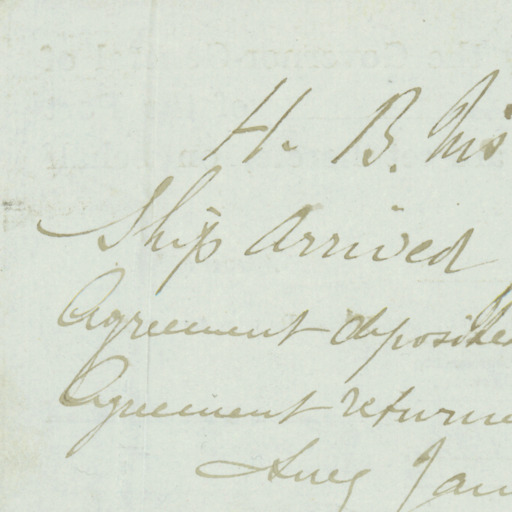 H. B. Ms
Ship arrived
Agreement deposited
Agreement returne
Jan